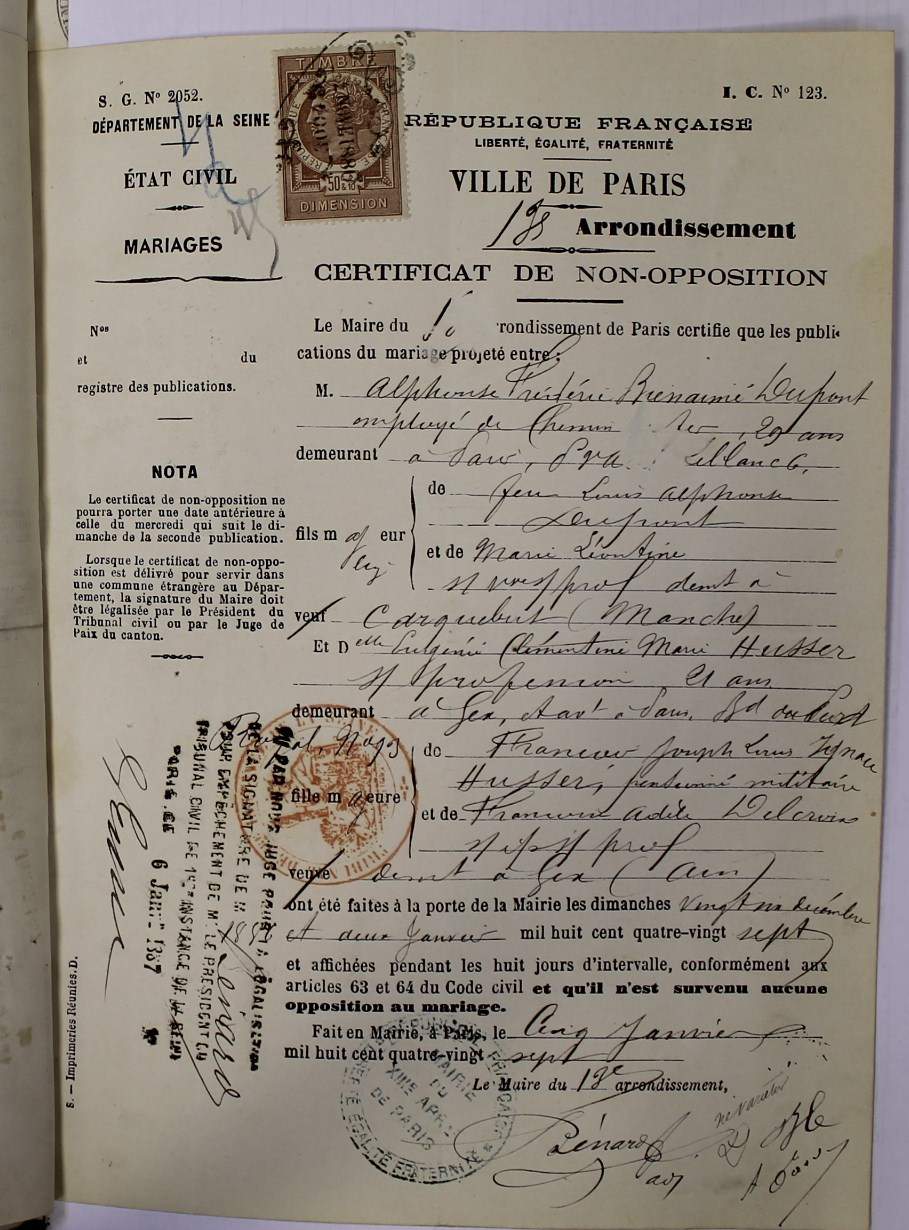 S. G. Nº 2052.
DÉPARTEMENT DE LA SEINE
ÉTAT CIVIL
MARIAGES
Nos
et du
registre des publications.
NOTA
Le certificat de non-opposition ne
pourra porter une date antérieure à
celle du mercredi qui suit le di-
manche de la seconde publication.
Lorsque le certificat de non-oppo-
sition est délivré pour servir dans
une commune étrangère au Dépar-
tement, la signature du Maire doit
être légalisée par le Président du
Tribunal civil ou par le Juge de
Paix du canton.
TIMBRE
50 & 10 c
DIMENSION
I. C. Nº 123.
RÉPUBLIQUE FRANÇAISE
LIBERTÉ, ÉGALITÉ, FRATERNITÉ
VILLE DE PARIS
13e Arrondissement
CERTIFICAT DE NON-OPPOSITION
Le Maire du rrondissement de Paris certifie que les publi-
cations du mariage projeté entre :
M. Alphonse Frédéric Bienaimé Dupont
employé de Chemin fer, 29 ans
demeurant à Paris, Leblanc 6,
de feu Louis Alphonse
Dupont
fils maj eur
et de Marie Léontine
prof demt à
veuf Carquebut (Manche)
Et Delle Eugénie Clémentine Marie Husser
s/ profession 21 ans
demeurant à Gex, et avt à Paris, Bd
de François Joseph Louis Ignace
Husser, pensionné militaire
fille m eure
et de Françoise Adèle Delcroix
prof
veuve demt à Gex (Ain)
ont été faites à la porte de la Mairie les dimanches vingt six décembre
et deux Janvier mil huit cent quatre-vingt sept
et affichées pendant les huit jours d'intervalle, conformément aux
articles 63 et 64 du Code civil et qu'il n'est survenu aucune
opposition au mariage.
Fait en Mairie, à Paris, le Cinq Janvier
mil huit cent quatre-vingt sept
Le Maire du 13e arrondissement,
Bénard
adj
ne varietur
MAIRIE
DU
XIIIe ARRt
DE PARIS
RÉPUBLIQUE FRANÇAISE
LIBERTÉ ÉGALITÉ FRATERNITÉ
VU PAR NOUS JUGE POUR LA LÉGALISATION
DE LA SIGNATURE DE M. Bénard
POUR EMPÊCHEMENT DE M. LE PRÉSIDENT DU
TRIBUNAL CIVIL DE 1re INSTANCE DE LA SEINE
PARIS, CE 6 Janv 1887
S. — Imprimeries Réunies, D.